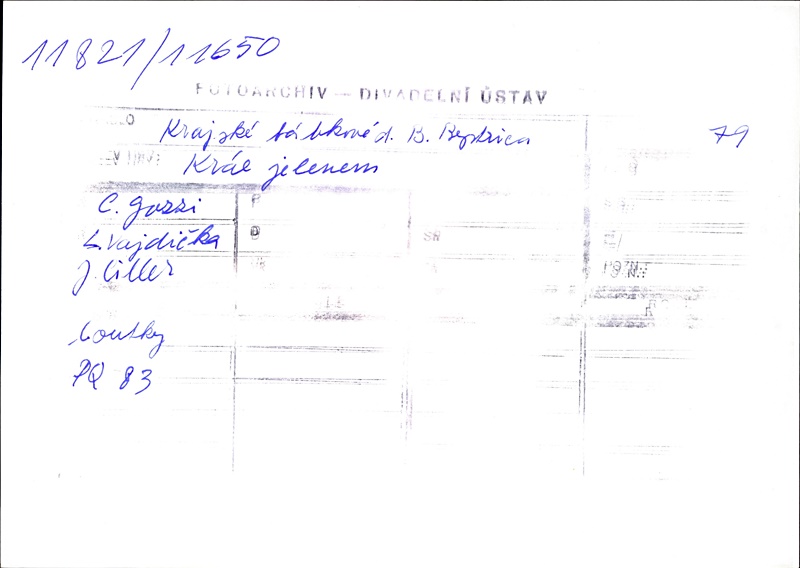 11821/11650
FOTOARCHIV — DIVADELNÍ ÚSTAV
Krajské bábkové d. B. Bystrica 79
Král jelenem
C. Gozzi
Vajdička
J. Ciller
Loutky
PQ 83